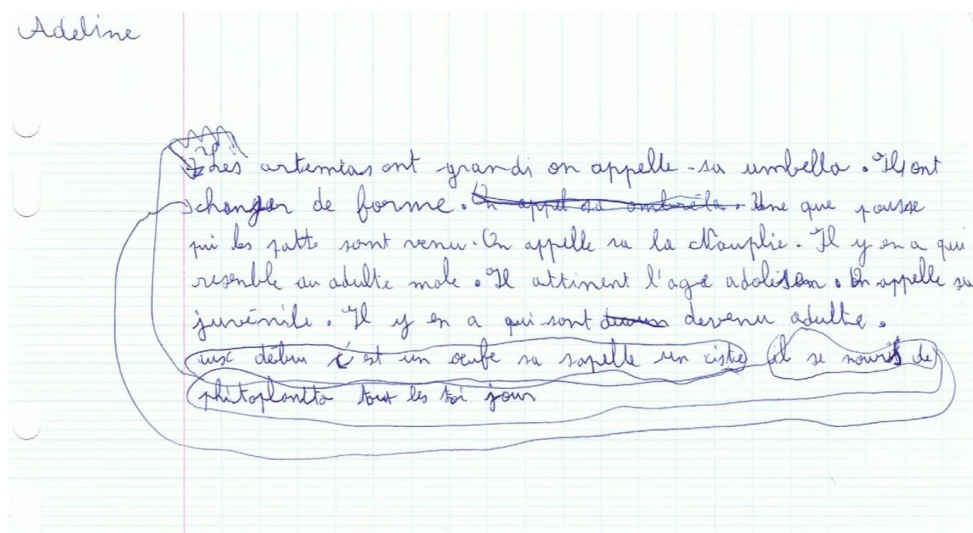 Adeline
Les artemias ont grandi on appelle-sa umbella. Il ont
changer de forme. On appel sa ombrela. Une que pousse
pui les patte sont venu. On appelle sa la Nauplie. Il y en a qui
resenble au adulte male. Il attinent l'age adolesen. On appelle sa
juvénile. Il y en a qui sont devenu adulte.
aux debu c'est un oeufe sa sapelle un ciste il se nouris de
phitoplantto tout les toi jour